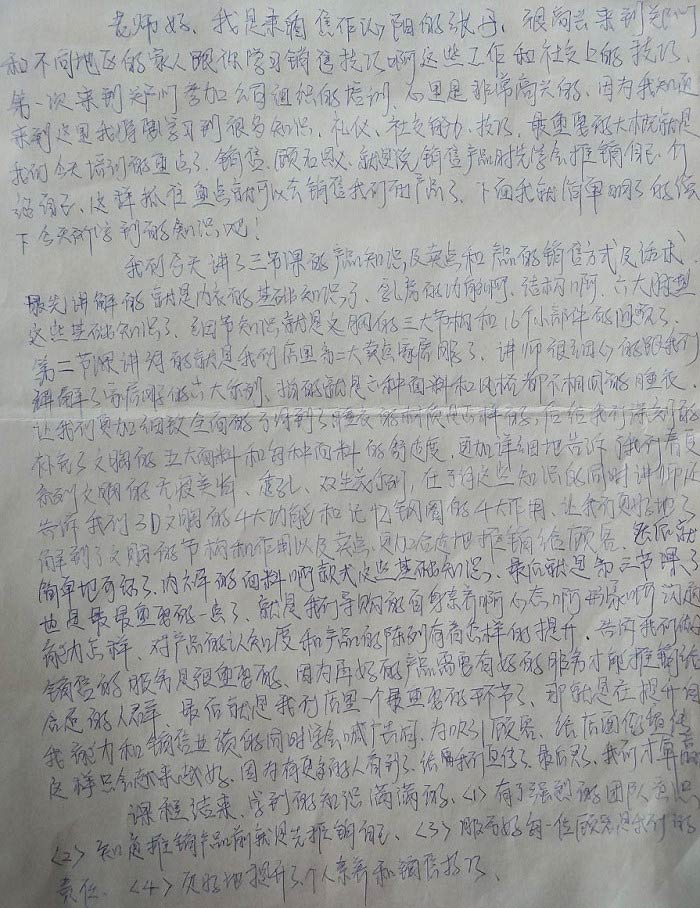 老师好、我是来自焦作沁阳的张丹、很高兴来到郑州
和不同地区的家人跟你学习销售技巧啊这些工作和社交上的技巧、
第一次来到郑州参加公司组织的培训、心里是非常高兴的、因为我知道
来到这里我将要学习到很多知识、礼仪、社交能力、技巧、最重要的大概就是
我们今天培训的重点了、销售、顾名思义、就是说销售产品时先学会推销自己、介
绍自己、这样抓住重点就可以去销售我们的产品了、下面我就简单明了的说
下今天所学到的知识吧！
我们今天讲了三节课的产品知识及卖点和产品的销售方式及话术、
最先讲解的就是内衣的基础知识了、乳房的内部啊、结构啊、六大胸型
这些基础知识了、细节知识就是文胸的三大节构和16个小部件的问题了、
第二节课讲的就是我们店里第二大卖点家居服了、讲师很细心的跟我们
讲解了家居服的六大系列、指的就是六种面料和风格都不相同的睡衣、
让我们更加细致全面的了解到了睡衣的材质是怎样的、后给我们深刻的
补充了文胸的五大面料和每种面料的舒适度、更加详细地告诉了我们
系列文胸的无痕美背、、双生花系列、在了解这些知识的同时讲师还
告诉我们3D文胸的4大功能和记忆钢圈的4大作用、让我们更好地了
解到了文胸的节构和作用以及卖点、更加合适地推销给顾客、然后就
简单地有讲了、内裤的面料啊款式这些基础知识、最后就是第三节课了
也是最最重要的一点了、就是我们导购的自身素养啊心态啊形象啊沟通
能力怎样、对产品的认知度和产品的陈列有着怎样的提升、告诉我们做
销售的服务是很重要的、因为再好的产品需要有好的服务才能推销给
合适的人群、最后就是我们店里一个最重要的环节了、那就是在提升自
我能力和销售业绩的同时学会喊广告词、为吸引顾客、给店面做宣传
这样只会越来越好、因为有更多的人看到了、给我们宣传了、最后、我们才算赢
课程结束、学到的知识满满的、<1>有了强烈的团队意识
<2>知道推销产品前我是先推销自己、<3>服务好每一位顾客是我们的
责任、<4>更好地提升了个人素养和销售技巧、